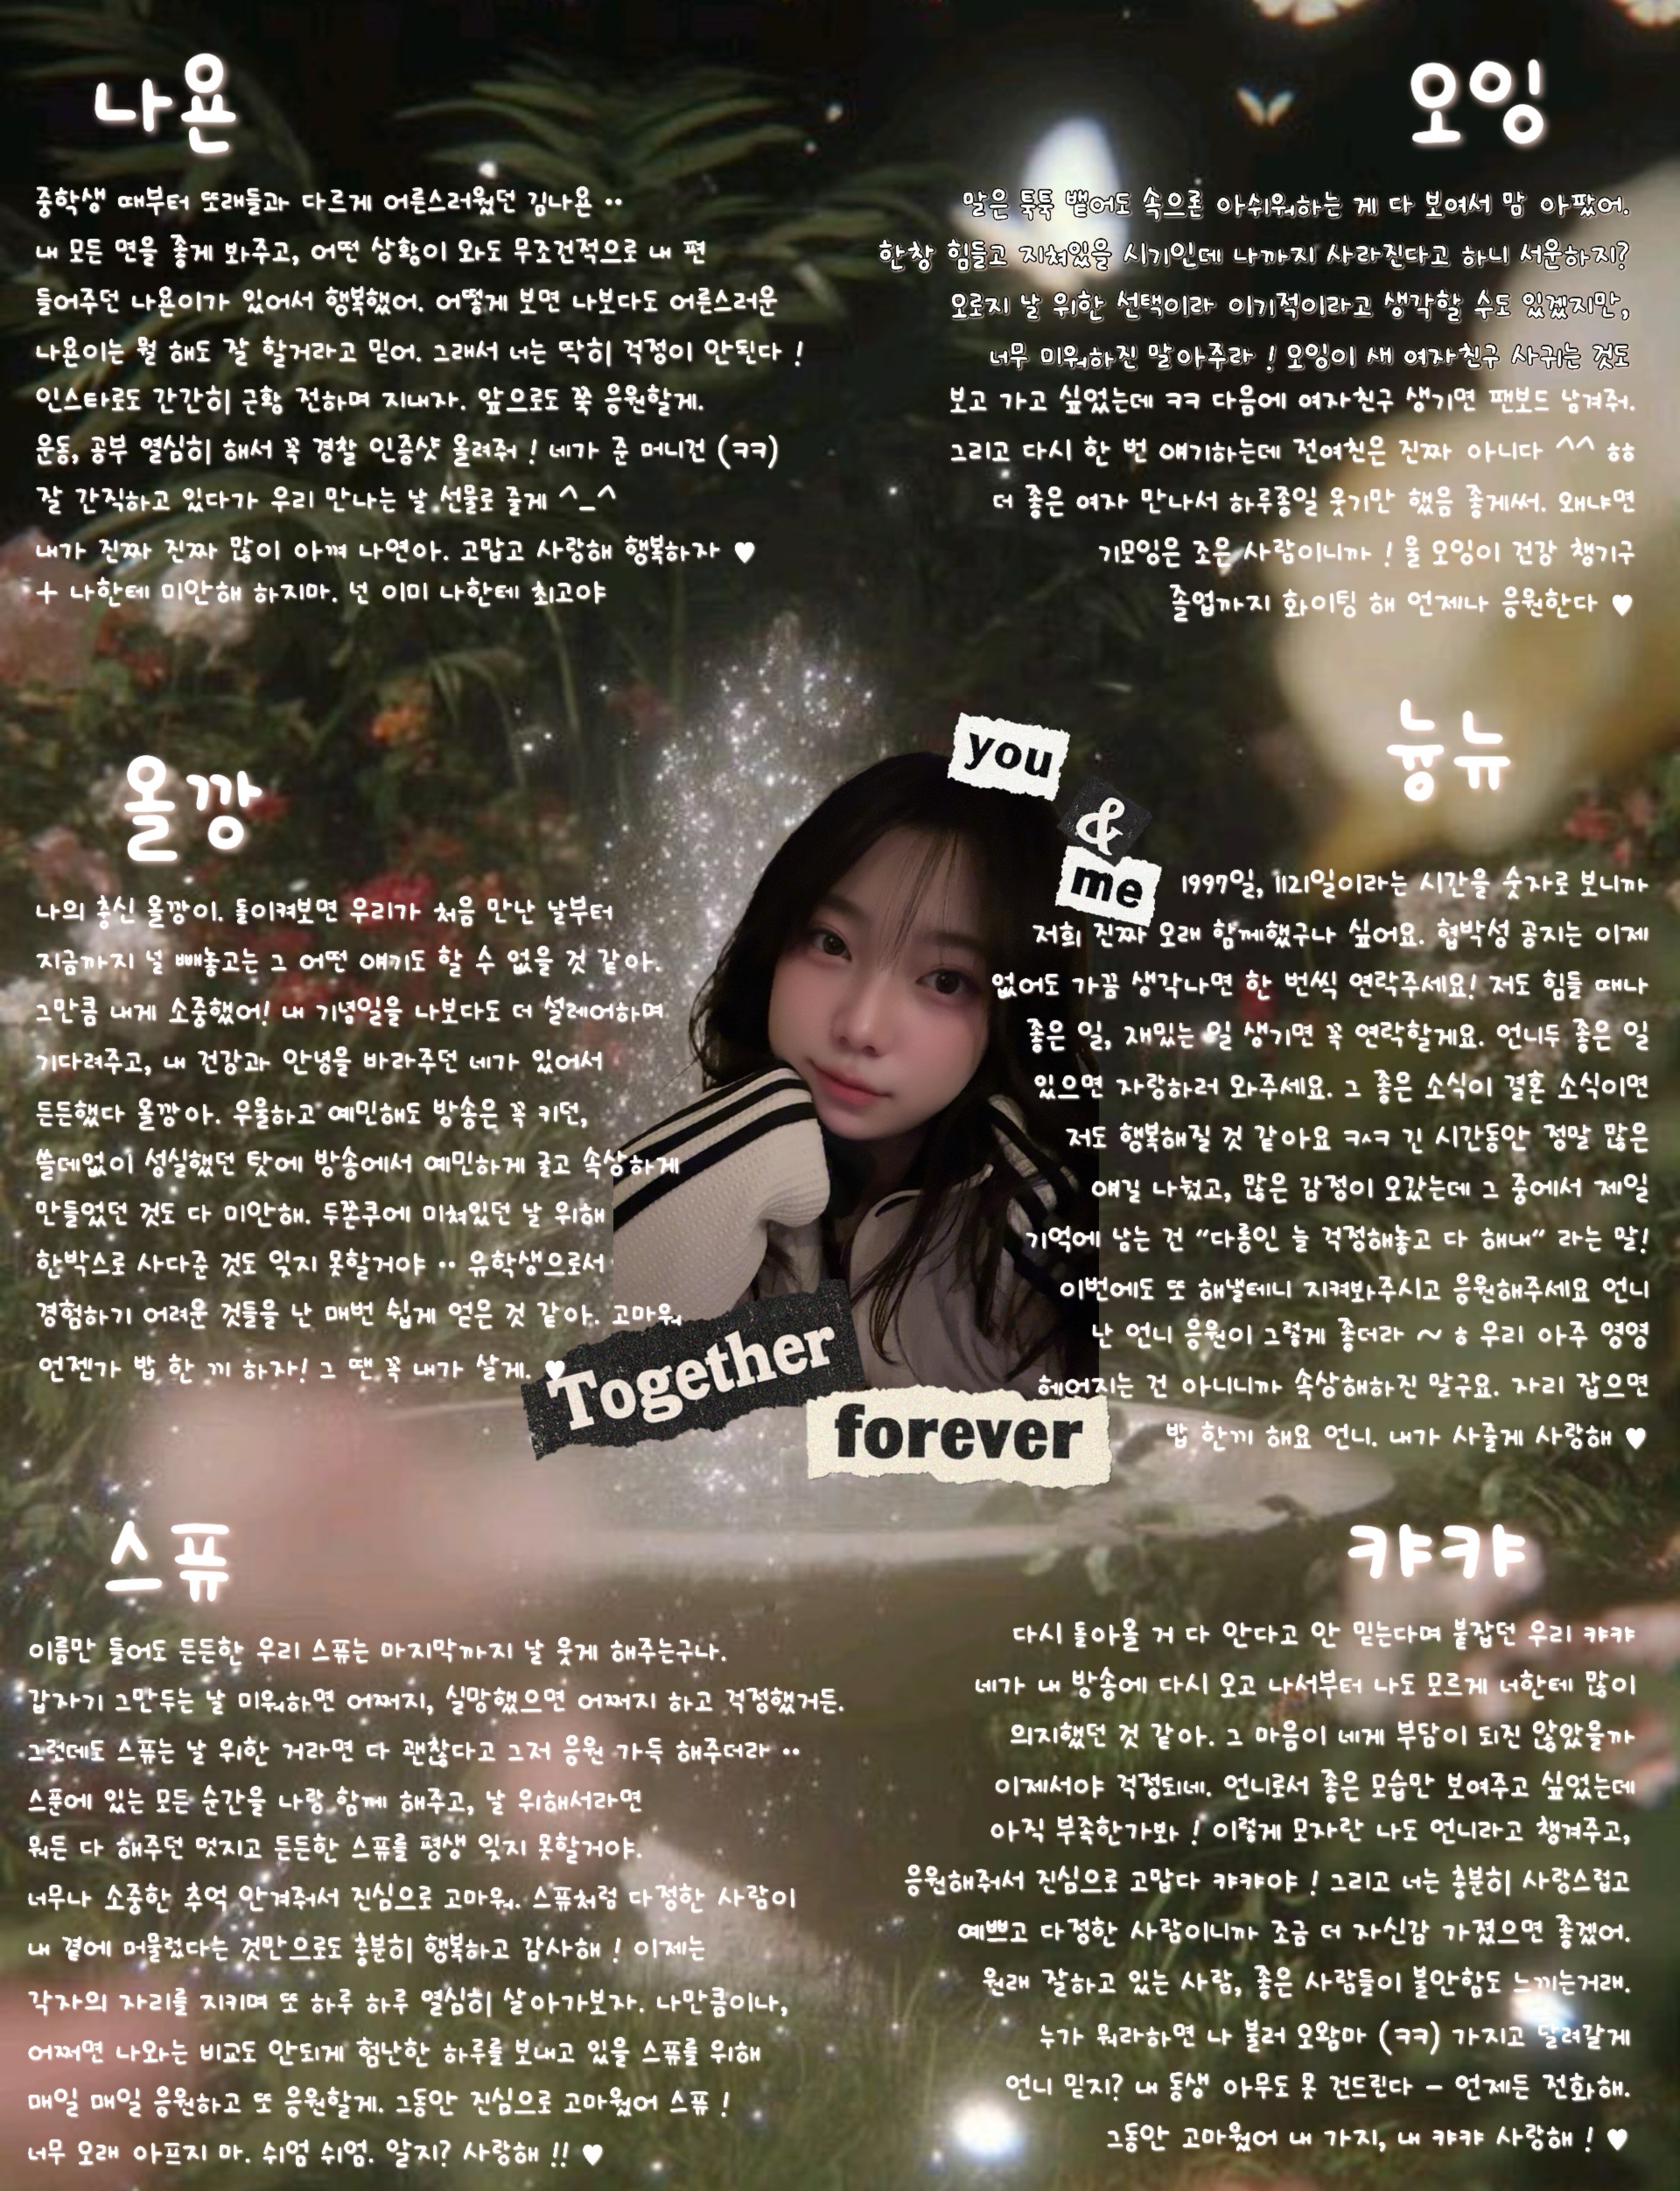 나욘
중학생 때부터 또래들과 다르게 어른스러웠던 김나욘 ••
내 모든 면을 좋게 봐주고, 어떤 상황이 와도 무조건적으로 내 편
들어주던 나욘이가 있어서 행복했어. 어떻게 보면 나보다도 어른스러운
나욘이는 뭘 해도 잘 할거라고 믿어. 그래서 너는 딱히 걱정이 안된다 !
인스타로도 간간히 근황 전하며 지내자. 앞으로도 쭉 응원할게.
운동, 공부 열심히 해서 꼭 경찰 인증샷 올려줘 ! 네가 준 머니건 (ㅋㅋ)
잘 간직하고 있다가 우리 만나는 날 선물로 줄게 ^_^
내가 진짜 진짜 많이 아껴 나연아. 고맙고 사랑해 행복하자 ♥
+ 나한테 미안해 하지마. 넌 이미 나한테 최고야
오잉
말은 툭툭 뱉어도 속으론 아쉬워하는 게 다 보여서 맘 아팠어.
한창 힘들고 지쳐있을 시기인데 나까지 사라진다고 하니 서운하지?
오로지 날 위한 선택이라 이기적이라고 생각할 수도 있겠지만,
너무 미워하진 말아주라 ! 오잉이 새 여자친구 사귀는 것도
보고 가고 싶었는데 ㅋㅋ 다음에 여자친구 생기면 팬보드 남겨줘.
그리고 다시 한 번 얘기하는데 전여친은 진짜 아니다 ^^ ㅎㅎ
더 좋은 여자 만나서 하루종일 웃기만 했음 좋게써. 왜냐면
기모잉은 조은 사람이니까 ! 울 오잉이 건강 챙기구
졸업까지 화이팅 해 언제나 응원한다 ♥
올깡
나의 충신 올깡이. 돌이켜보면 우리가 처음 만난 날부터
지금까지 널 빼놓고는 그 어떤 얘기도 할 수 없을 것 같아.
그만큼 내게 소중했어! 내 기념일을 나보다도 더 설레어하며
기다려주고, 내 건강과 안녕을 바라주던 네가 있어서
든든했다 올깡아. 우울하고 예민해도 방송은 꼭 키던,
쓸데없이 성실했던 탓에 방송에서 예민하게 굴고 속상하게
만들었던 것도 다 미안해. 두쫀쿠에 미쳐있던 날 위해
한박스로 사다준 것도 잊지 못할거야 •• 유학생으로서
경험하기 어려운 것들을 난 매번 쉽게 얻은 것 같아. 고마워
언젠가 밥 한 끼 하자! 그 땐 꼭 내가 살게. ♥
you
&
me
Together
forever
늉뉴
1997일, 1121일이라는 시간을 숫자로 보니까
저희 진짜 오래 함께했구나 싶어요. 협박성 공지는 이제
없어도 가끔 생각나면 한 번씩 연락주세요! 저도 힘들 때나
좋은 일, 재밌는 일 생기면 꼭 연락할게요. 언니두 좋은 일
있으면 자랑하러 와주세요. 그 좋은 소식이 결혼 소식이면
저도 행복해질 것 같아요 ㅋㅅㅋ 긴 시간동안 정말 많은
얘길 나눴고, 많은 감정이 오갔는데 그 중에서 제일
기억에 남는 건 "다룽인 늘 걱정해놓고 다 해내" 라는 말!
이번에도 또 해낼테니 지켜봐주시고 응원해주세요 언니
난 언니 응원이 그렇게 좋더라 ~ ㅎ 우리 아주 영영
헤어지는 건 아니니까 속상해하진 말구요. 자리 잡으면
밥 한끼 해요 언니. 내가 사줄게 사랑해 ♥
스퓨
이름만 들어도 든든한 우리 스퓨는 마지막까지 날 웃게 해주는구나.
갑자기 그만두는 날 미워하면 어쩌지, 실망했으면 어쩌지 하고 걱정했거든.
그런데도 스퓨는 날 위한 거라면 다 괜찮다고 그저 응원 가득 해주더라 ••
스푼에 있는 모든 순간을 나랑 함께 해주고, 날 위해서라면
뭐든 다 해주던 멋지고 든든한 스퓨를 평생 잊지 못할거야.
너무나 소중한 추억 안겨줘서 진심으로 고마워. 스퓨처럼 다정한 사람이
내 곁에 머물렀다는 것만으로도 충분히 행복하고 감사해 ! 이제는
각자의 자리를 지키며 또 하루 하루 열심히 살아가보자. 나만큼이나,
어쩌면 나와는 비교도 안되게 험난한 하루를 보내고 있을 스퓨를 위해
매일 매일 응원하고 또 응원할게. 그동안 진심으로 고마웠어 스퓨 !
너무 오래 아프지 마. 쉬엄 쉬엄. 알지? 사랑해 !! ♥
캬캬
다시 돌아올 거 다 안다고 안 믿는다며 붙잡던 우리 캬캬
네가 내 방송에 다시 오고 나서부터 나도 모르게 너한테 많이
의지했던 것 같아. 그 마음이 네게 부담이 되진 않았을까
이제서야 걱정되네. 언니로서 좋은 모습만 보여주고 싶었는데
아직 부족한가봐 ! 이렇게 모자란 나도 언니라고 챙겨주고,
응원해줘서 진심으로 고맙다 캬캬야 ! 그리고 너는 충분히 사랑스럽고
예쁘고 다정한 사람이니까 조금 더 자신감 가졌으면 좋겠어.
원래 잘하고 있는 사람, 좋은 사람들이 불안함도 느끼는거래.
누가 뭐라하면 나 불러 오함마 (ㅋㅋ) 가지고 달려갈게
언니 믿지? 내 동생 아무도 못 건드린다 - 언제든 전화해.
그동안 고마웠어 내 가지, 내 캬캬 사랑해 ! ♥